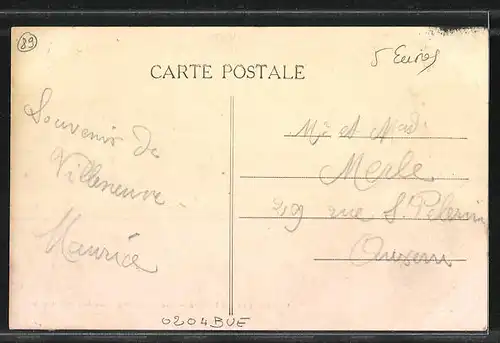 89
5 Euros
CARTE POSTALE
Souvenir de
Villeneuve.
Maurice
Mr et Mad.
Merle
29 rue St Pelerin
Auxerre
0204BUE